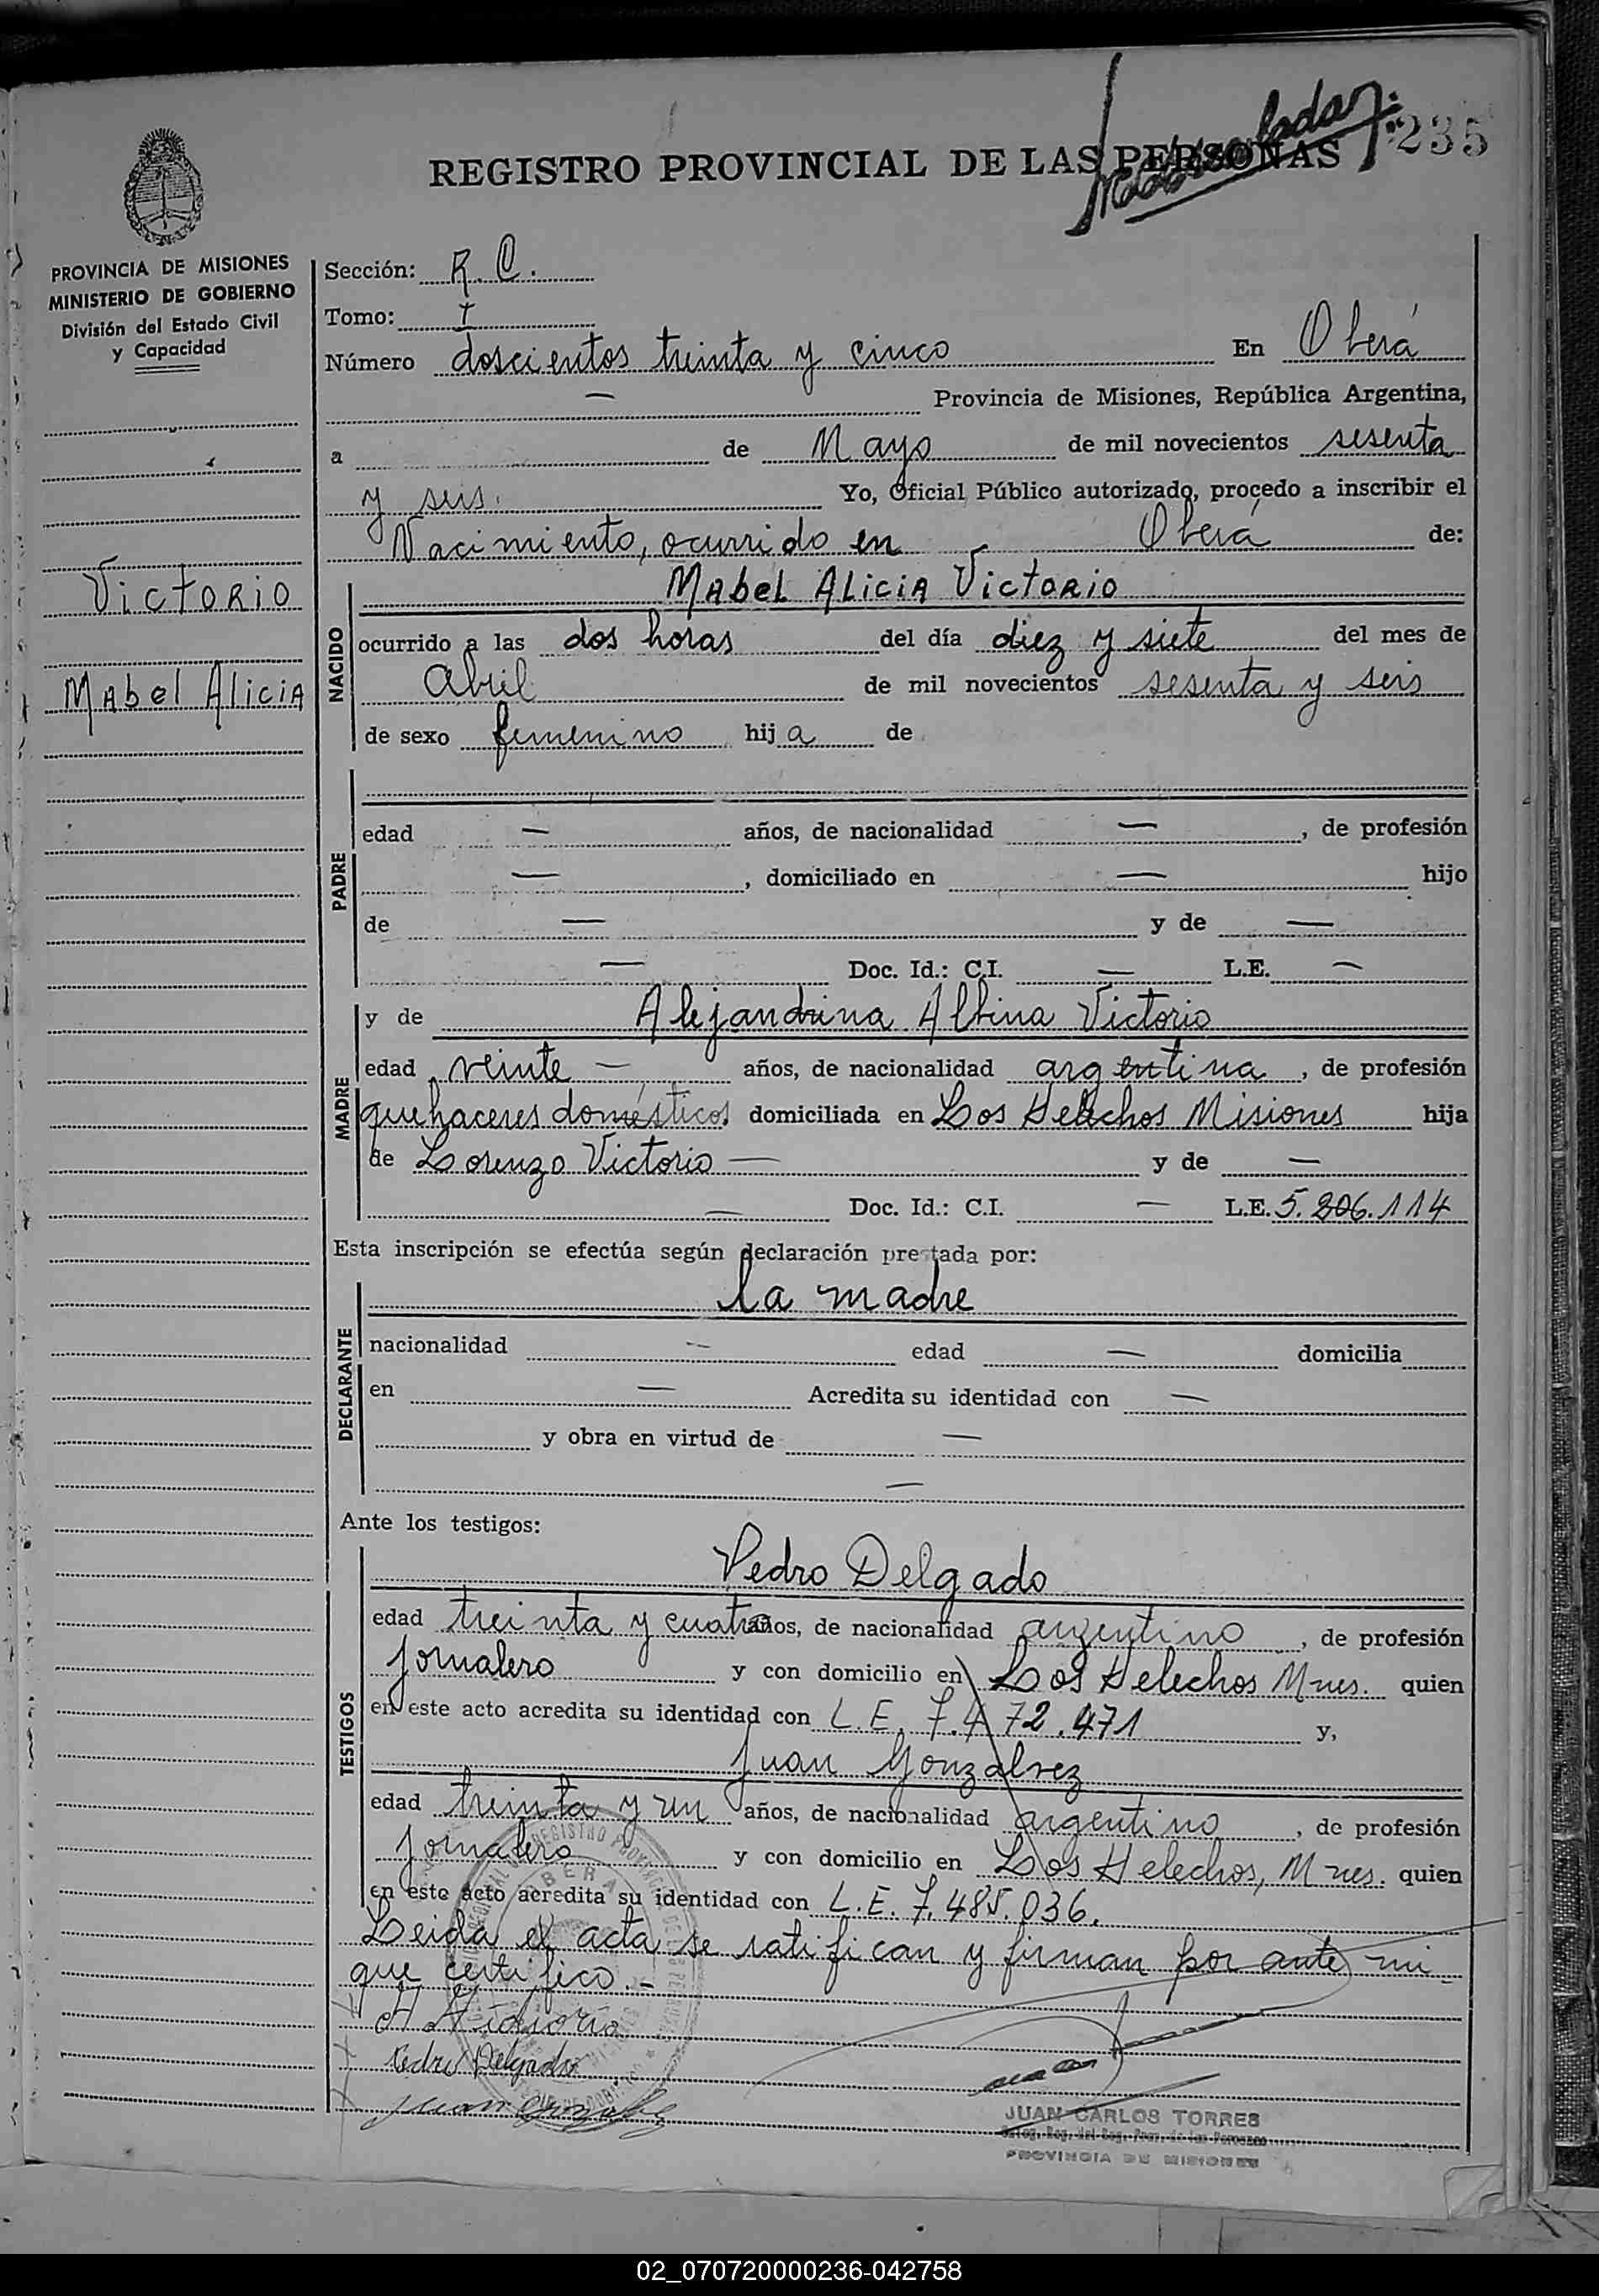 235
REGISTRO PROVINCIAL DE LAS PERSONAS
PROVINCIA DE MISIONES
MINISTERIO DE GOBIERNO
División del Estado Civil
y Capacidad
Victorio
Mabel Alicia
Sección: R. C.
Tomo: I
Número doscientos treinta y cinco En Oberá
— Provincia de Misiones, República Argentina,
a de Mayo de mil novecientos sesenta
y seis. Yo, Oficial Público autorizado, procedo a inscribir el
Nacimiento, ocurrido en Oberá de:
NACIDO
Mabel Alicia Victorio
ocurrido a las dos horas del día diez y siete del mes de
Abril de mil novecientos sesenta y seis
de sexo femenino hija de
PADRE
edad — años, de nacionalidad — , de profesión
— , domiciliado en — hijo
de — y de —
— Doc. Id.: C.I. — L.E. —
MADRE
y de Alejandrina Albina Victorio
edad veinte — años, de nacionalidad argentina , de profesión
quehaceres domésticos domiciliada en Los Helechos Misiones hija
de Lorenzo Victorio — y de —
— Doc. Id.: C.I. — L.E. 5.206.114
Esta inscripción se efectúa según declaración prestada por:
DECLARANTE
la madre
nacionalidad — edad — domicilia
en — Acredita su identidad con —
y obra en virtud de —
—
Ante los testigos:
TESTIGOS
Pedro Delgado
edad treinta y cuatro años, de nacionalidad argentino , de profesión
jornalero y con domicilio en Los Helechos Mnes. quien
en este acto acredita su identidad con L.E. 7.472.471 y,
Juan Gonzalvez
edad treinta y un años, de nacionalidad argentino , de profesión
jornalero y con domicilio en Los Helechos, Mnes. quien
en este acto acredita su identidad con L.E. 7.485.036.
Leida el acta se ratifican y firman por ante mi
que certifico.-
A Victorio
Pedro Delgado
Juan Gonzalvez
JUAN CARLOS TORRES
PROVINCIA DE MISIONES
02_070720000236-042758